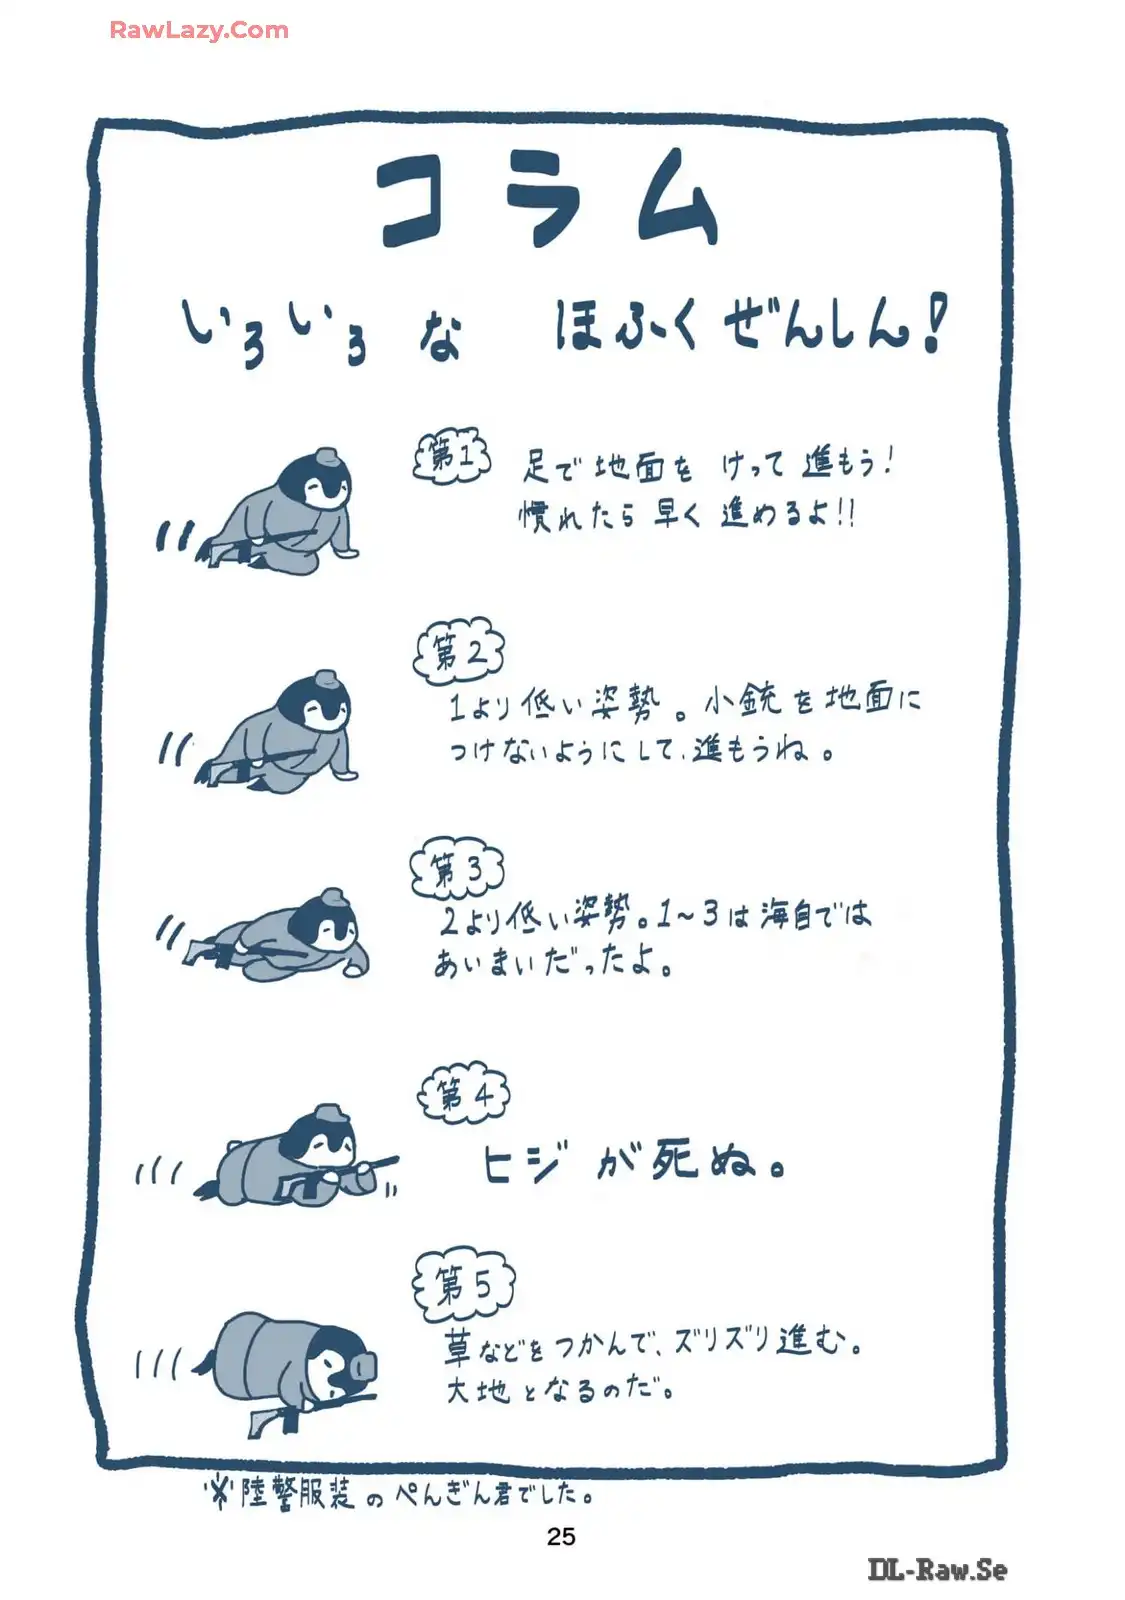 RawLazy.Com
コラム
いろいろな ほふくぜんしん!
第1
足で地面を けって 進もう!
慣れたら 早く 進めるよ!!
第2
1より低い姿勢。小銃を地面に
つけないようにして、進もうね。
第3
2より低い姿勢。1~3は海自では
あいまいだったよ。
第4
ヒジが死ぬ。
第5
草などをつかんで、ズリズリ進む。
大地となるのだ。
※陸警服装のぺんぎん君でした。
25
DL-Raw.Se